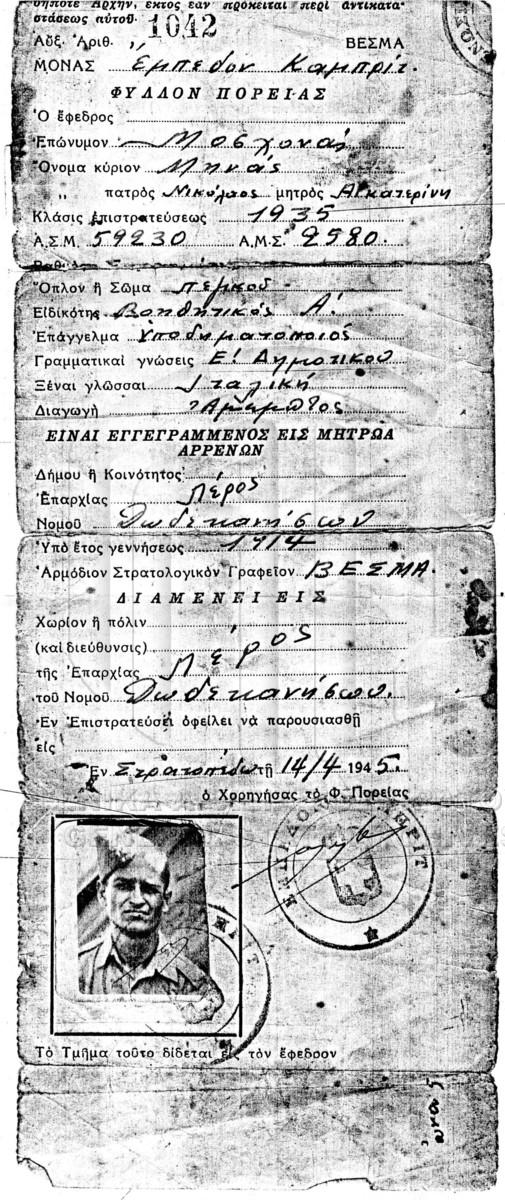 δήποτε Ἀρχήν, ἐκτὸς ἐὰν πρόκειται περὶ ἀντικατα-
στάσεως αὐτοῦ.
1042
Αὔξ. Ἀριθ. ,, ΒΕΣΜΑ
ΜΟΝΑΣ Ἔμπεδον Καμπρίτ.
ΦΥΛΛΟΝ ΠΟΡΕΙΑΣ
Ὁ ἔφεδρος
Ἐπώνυμον Μοσχονάς
Ὄνομα κύριον Μηνάς
,, πατρὸς Νικόλαος μητρὸς Αἰκατερίνη
Κλάσις ἐπιστρατεύσεως 1935
Α.Σ.Μ. 59230 Α.Μ.Σ. 2580.
Ὅπλον ἢ Σῶμα πεζικοῦ
Εἰδικότης Βοηθητικὸς Α!
Ἐπάγγελμα Ὑποδηματοποιός
Γραμματικαὶ γνώσεις Ε! Δημοτικοῦ
Ξέναι γλῶσσαι Ἰταλική
Διαγωγὴ Ἄμεμπτος
ΕΙΝΑΙ ΕΓΓΕΓΡΑΜΜΕΝΟΣ ΕΙΣ ΜΗΤΡΩΑ
ΑΡΡΕΝΩΝ
Δήμου ἢ Κοινότητος
Ἐπαρχίας Λέρος
Νομοῦ Δωδεκανήσων
Ὑπὸ ἔτος γεννήσεως 1914
Ἁρμόδιον Στρατολογικὸν Γραφεῖον ΒΕΣΜΑ.
ΔΙΑΜΕΝΕΙ ΕΙΣ
Χωρίον ἢ πόλιν
(καὶ διεύθυνσις)
τῆς Ἐπαρχίας Λέρος
τοῦ Νομοῦ Δωδεκανήσων.
Ἐν Ἐπιστρατεύσει ὀφείλει νὰ παρουσιασθῇ
εἰς
Ἐν Στρατοπέδῳ τῇ 14/4 1945.
ὁ Χορηγήσας τὸ Φ. Πορείας
Τὸ Τμῆμα τοῦτο δίδεται εἰς τὸν ἔφεδρον